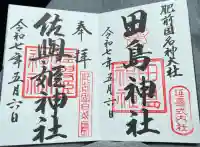 肥前国名神大社
田島神社
令和七年五月六日
延喜式内社
奉拝
佐與姫神社
令和七年五月六日